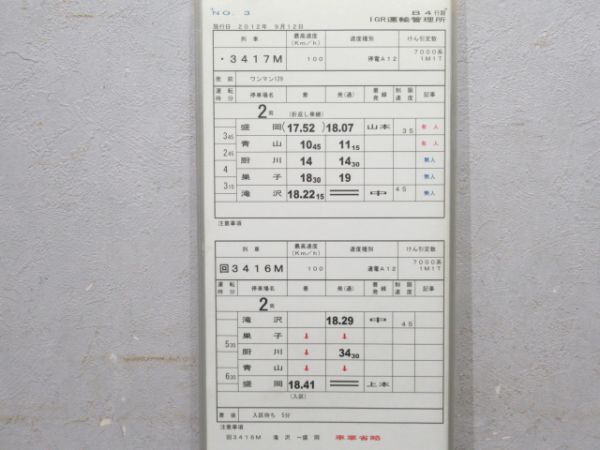 NO. 3
B4行路
施行日 2012年 9月12日 IGR運輸管理所
列車 最高速度(Km/h) 速度種別 けん引定数
・3417M 100 停電A12 7000系 1M1T
発前 ワンマン129
運転時分 停車場名 着 発(通) 着発線 制限速度 記事
2両 (折返し乗継)
盛岡 (17.52) 18.07 山本 35 有人
345
青山 1045 1115 有人
245
厨川 14 1430 無人
4
巣子 1830 19 無人
315
滝沢 18.2215 中 45 無人
注意事項
列車 最高速度(Km/h) 速度種別 けん引定数
回3416M 100 通電A12 7000系 1M1T
運転時分 停車場名 着 発(通) 着発線 制限速度 記事
2両
滝沢 18.29 中 45
巣子 ↓ ↓
535
厨川 ↓ 3430
青山 ↓ ↓
635
盛岡 18.41 上本
(入区)
着後 入区待ち 5分
注意事項
回3416M 滝沢 〜盛岡 車掌省略